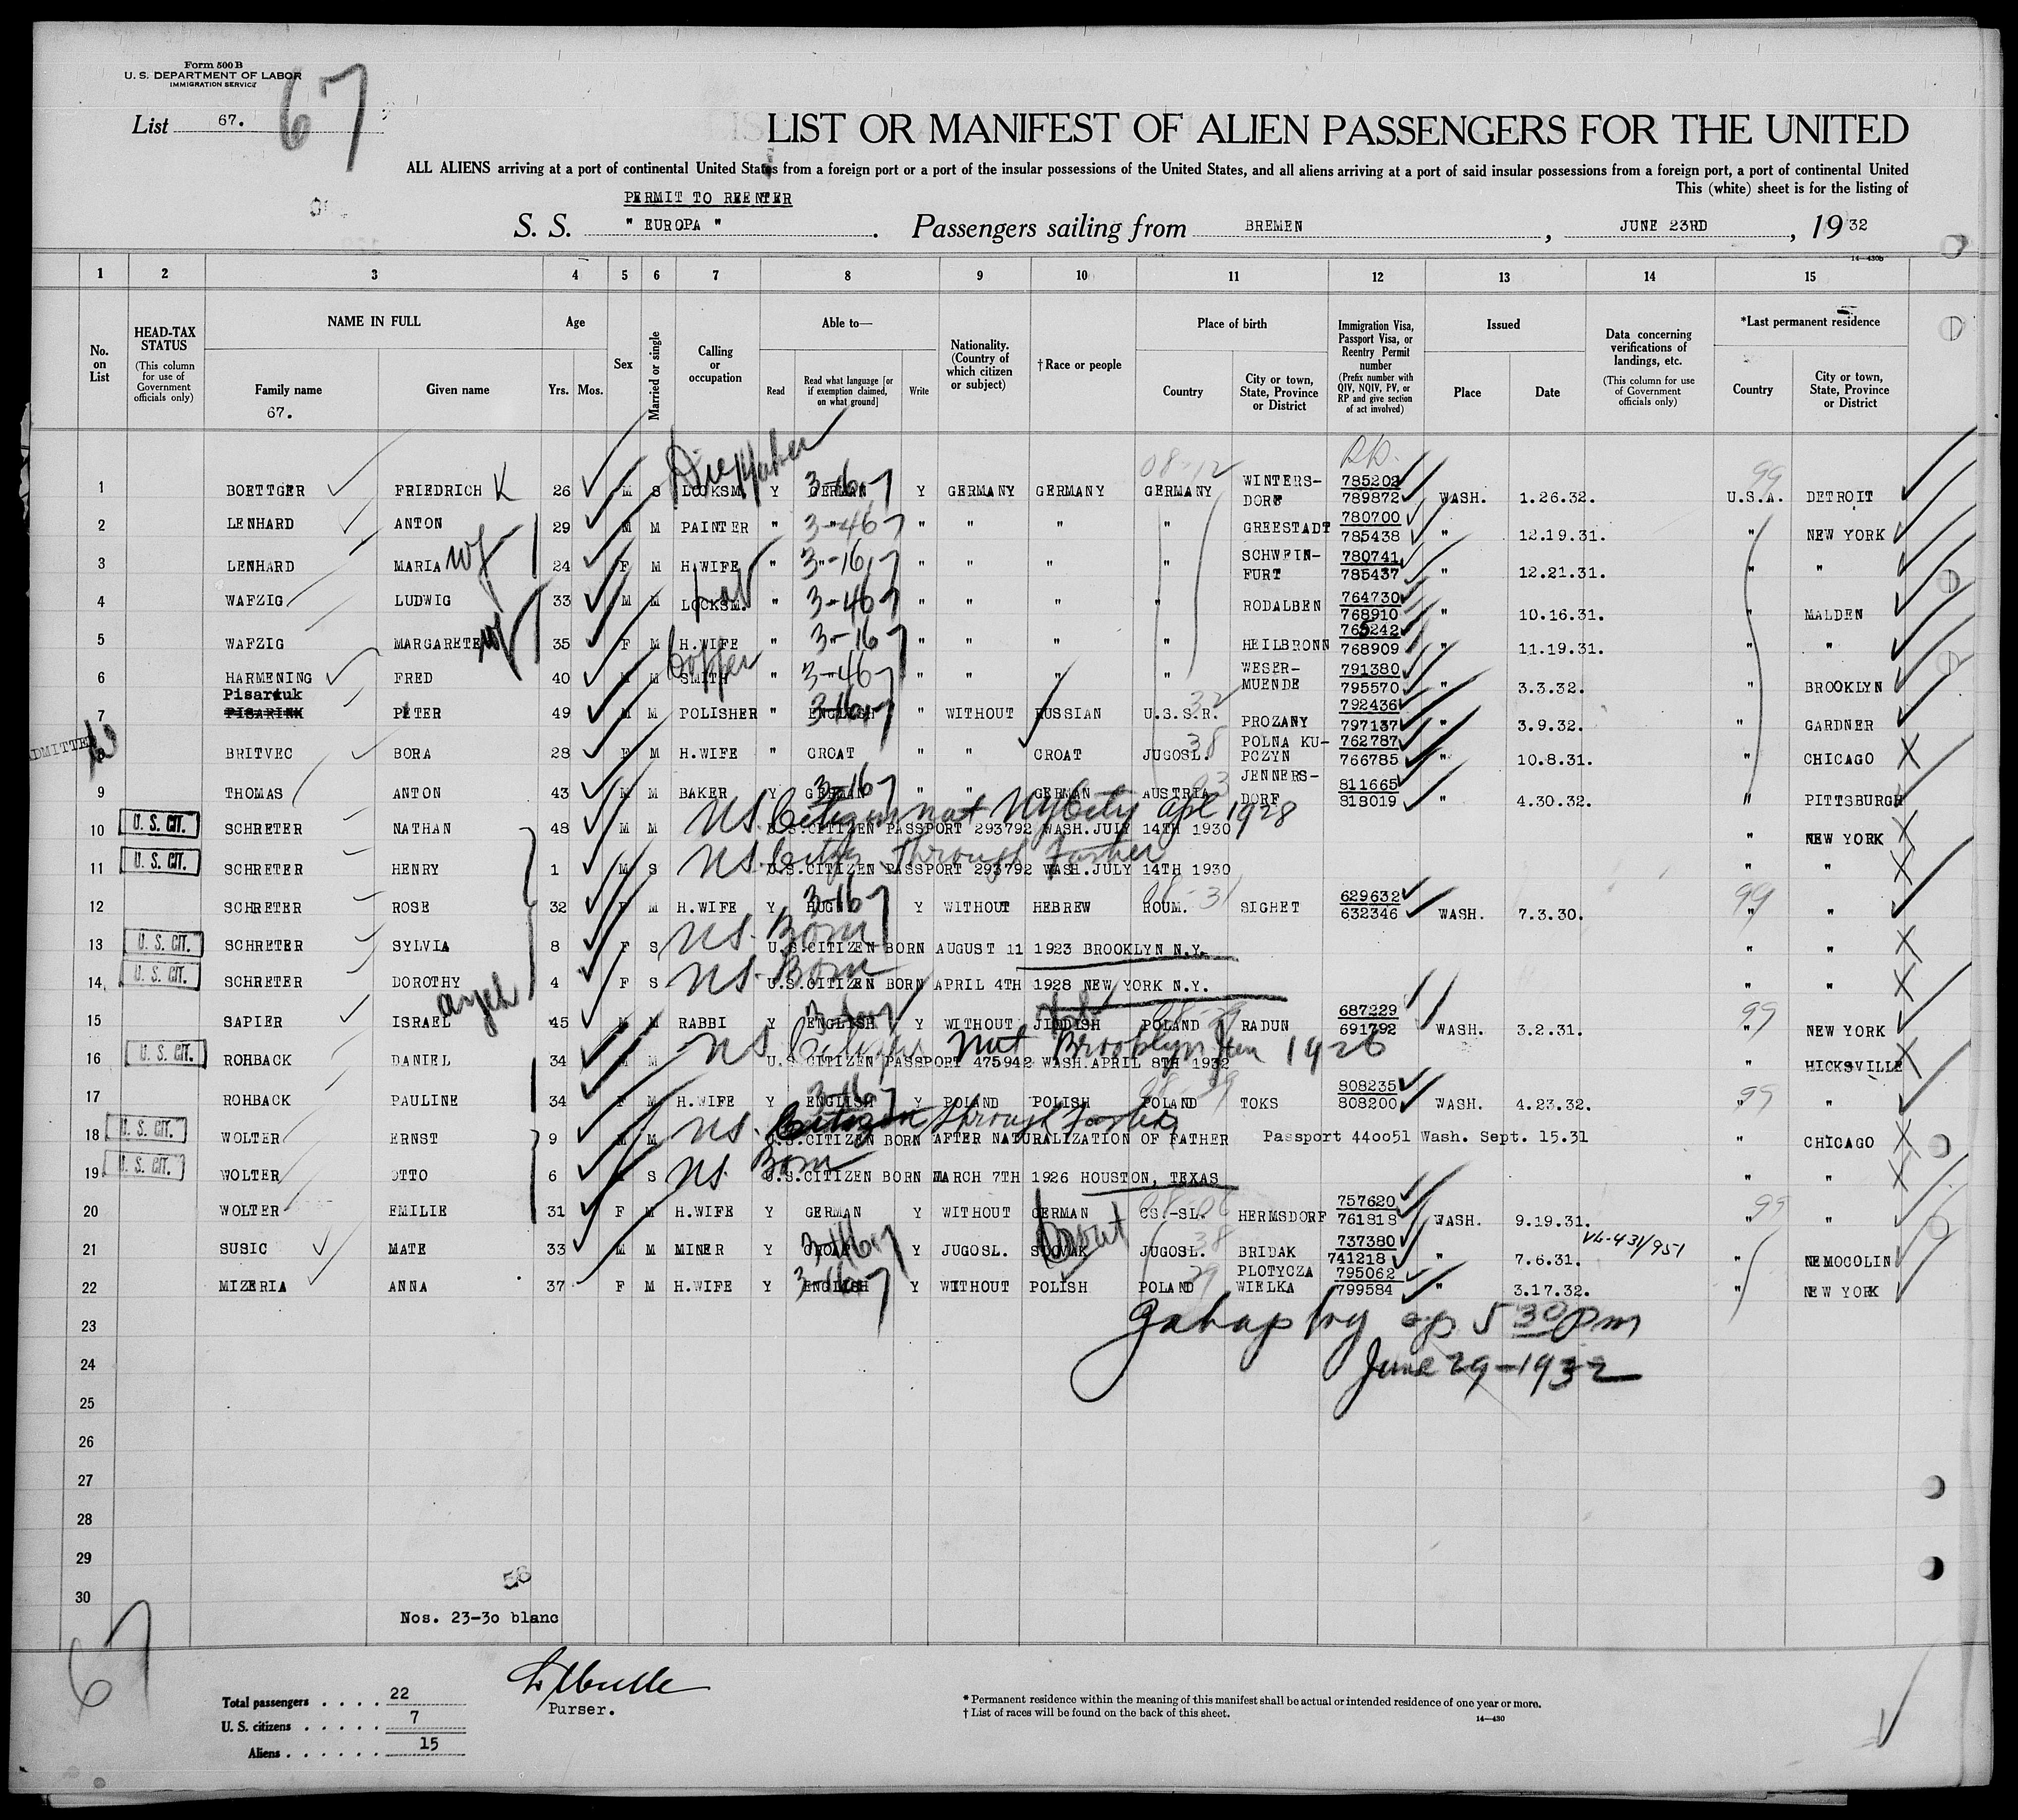 Form 500 B
U. S. DEPARTMENT OF LABOR
IMMIGRATION SERVICE
List 67. 67
LIST OR MANIFEST OF ALIEN PASSENGERS FOR THE UNITED
ALL ALIENS arriving at a port of continental United States from a foreign port or a port of the insular possessions of the United States, and all aliens arriving at a port of said insular possessions from a foreign port, a port of continental United
This (white) sheet is for the listing of
PERMIT TO REENTER
S. S. " EUROPA " . Passengers sailing from BREMEN , JUNE 23RD , 1932
14—430b
1 2 3 4 5 6 7 8 9 10 11 12 13 14 15
No. on List
HEAD-TAX STATUS (This column for use of Government officials only)
NAME IN FULL Family name Given name
67.
Age Yrs. Mos.
Sex
Married or single
Calling or occupation
Able to— Read Read what language [or if exemption claimed, on what ground] Write
Nationality. (Country of which citizen or subject)
†Race or people
Place of birth Country City or town, State, Province or District
Immigration Visa, Passport Visa, or Reentry Permit number (Prefix number with QIV, NQIV, PV, or RP and give section of act involved)
Issued Place Date
Data concerning verifications of landings, etc. (This column for use of Government officials only)
*Last permanent residence Country City or town, State, Province or District
1 BOETTGER FRIEDRICH K 26 M S LOCKSM. Y GERMAN Y GERMANY GERMANY GERMANY WINTERS-DORF 785202 789872 WASH. 1.26.32. U.S.A. DETROIT
2 LENHARD ANTON 29 M M PAINTER " " " " " " GREESTADT 780700 785438 " 12.19.31. " NEW YORK
3 LENHARD MARIA wf 24 F M H.WIFE " " " " " " SCHWEIN-FURT 780741 785437 " 12.21.31. " "
4 WAFZIG LUDWIG 33 M M LOCKSM. " " " " " " RODALBEN 764730 768910 " 10.16.31. " MALDEN
5 WAFZIG MARGARETE wf 35 F M H.WIFE " " " " " " HEILBRONN 765242 768909 " 11.19.31. " "
6 HARMENING FRED 40 M M SMITH " " " " " " WESER-MUENDE 791380 795570 " 3.3.32. " BROOKLYN
Pisaruk
7 PISARIEK PETER 49 M M POLISHER " ENGLISH " WITHOUT RUSSIAN U.S.S.R. PROZANY 792436 797137 " 3.9.32. " GARDNER
ADMITTED
8 BRITVEC BORA 28 F M H.WIFE " CROAT " " CROAT JUGOSL. POLNA KU-PCZYN 762787 766785 " 10.8.31. " CHICAGO
9 THOMAS ANTON 43 M M BAKER Y GERMAN " " GERMAN AUSTRIA JENNERS-DORF 811665 818019 " 4.30.32. " PITTSBURGH
10 U. S. CIT. SCHRETER NATHAN 48 M M U.S.CITIZEN PASSPORT 293792 WASH.JULY 14TH 1930 " NEW YORK
US. Citizen nat NY City apl 1928
11 U. S. CIT. SCHRETER HENRY 1 M S U.S.CITIZEN PASSPORT 293792 WASH.JULY 14TH 1930 " "
US. Citizen through Father
12 SCHRETER ROSE 32 F M H.WIFE Y Y WITHOUT HEBREW ROUM. SIGHET 629632 632346 WASH. 7.3.30. " "
13 U. S. CIT. SCHRETER SYLVIA 8 F S U.S.CITIZEN BORN AUGUST 11 1923 BROOKLYN N.Y. " "
US. Born
14 U. S. CIT. SCHRETER DOROTHY 4 F S U.S.CITIZEN BORN APRIL 4TH 1928 NEW YORK N.Y. " "
US. Born
15 SAPIER ISRAEL 45 M M RABBI Y ENGLISH Y WITHOUT JIDDISH POLAND RADUN 687229 691792 WASH. 3.2.31. " NEW YORK
16 U. S. CIT. ROHBACK DANIEL 34 M M U.S.CITIZEN PASSPORT 475942 WASH.APRIL 8TH 1932 " HICKSVILLE
US Citizen nat Brooklyn Jan 1926
17 ROHBACK PAULINE 34 F M H.WIFE Y ENGLISH Y POLAND POLISH POLAND TOKS 808235 808200 WASH. 4.23.32. " "
18 U. S. CIT. WOLTER ERNST 9 M M U.S.CITIZEN BORN AFTER NATURALIZATION OF FATHER Passport 440051 Wash. Sept. 15.31 " CHICAGO
US. Citizen through Father
19 U. S. CIT. WOLTER OTTO 6 S U.S.CITIZEN BORN MARCH 7TH 1926 HOUSTON, TEXAS " "
US Born
20 WOLTER EMILIE 31 F M H.WIFE Y GERMAN Y WITHOUT GERMAN CS.-SL. HERMSDORF 757620 761818 WASH. 9.19.31. " "
21 SUSIC MATE 33 M M MINER Y CROAT Y JUGOSL. SLOVAK Croat JUGOSL. BRIDAK 737380 741218 " 7.6.31. VL-431/951 " NEMOCOLIN
22 MIZERIA ANNA 37 F M H.WIFE Y ENGLISH Y WITHOUT POLISH POLAND PLOTYCZA WIELKA 795062 799584 " 3.17.32. " NEW YORK
23
5 30 Pm
24
June 29-1932
25
26
27
28
29
30
56
Nos. 23-30 blanc
67
Total passengers . . . . 22
U. S. citizens . . . . . 7
Aliens . . . . . . 15
Purser.
* Permanent residence within the meaning of this manifest shall be actual or intended residence of one year or more.
† List of races will be found on the back of this sheet.
14—430